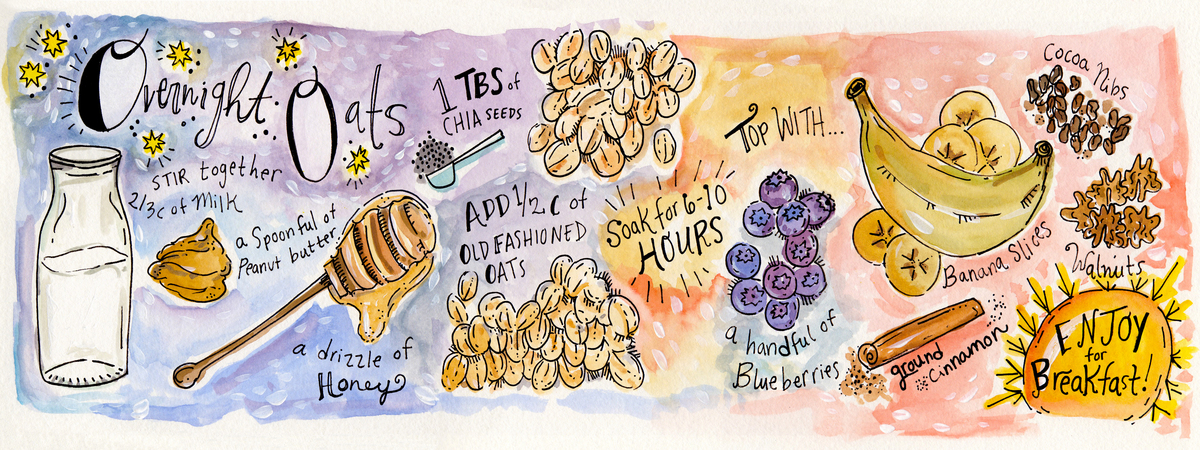 Overnight Oats
STIR together
2/3c of Milk
a Spoonful of
Peanut butter,
a drizzle of
Honey
1 TBS of
CHIA SEEDS
ADD 1/2 C of
OLD FASHIONED
OATS
Soak for 6-10
HOURS
TOP WITH...
a handful of
Blueberries
Banana Slices
Cocoa Nibs
Walnuts
ground
cinnamon
ENJOY
for
Breakfast!